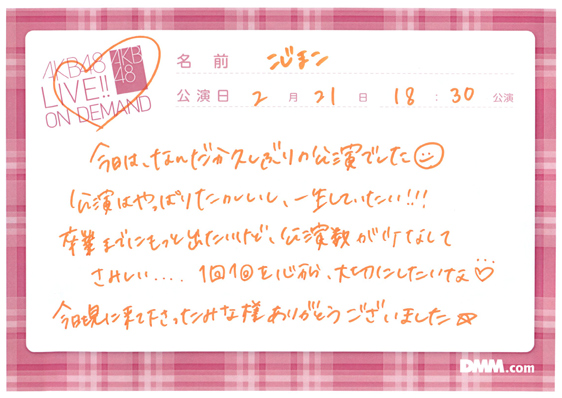 AKB48
LIVE!!
ON DEMAND
AKB
48
名前 こじまこ
公演日 2月21日 18:30公演
今日は、なんだか久しぶりの公演でした
公演はやっぱりたのしいし、一生していたい!!!
卒業までにもっと出たいけど、公演数が少なくて
さみしい.... 1回1回を心から、大切にしたいなぁ♡...
今日見に来て下さったみな様ありがとうございました☆
DMM.com